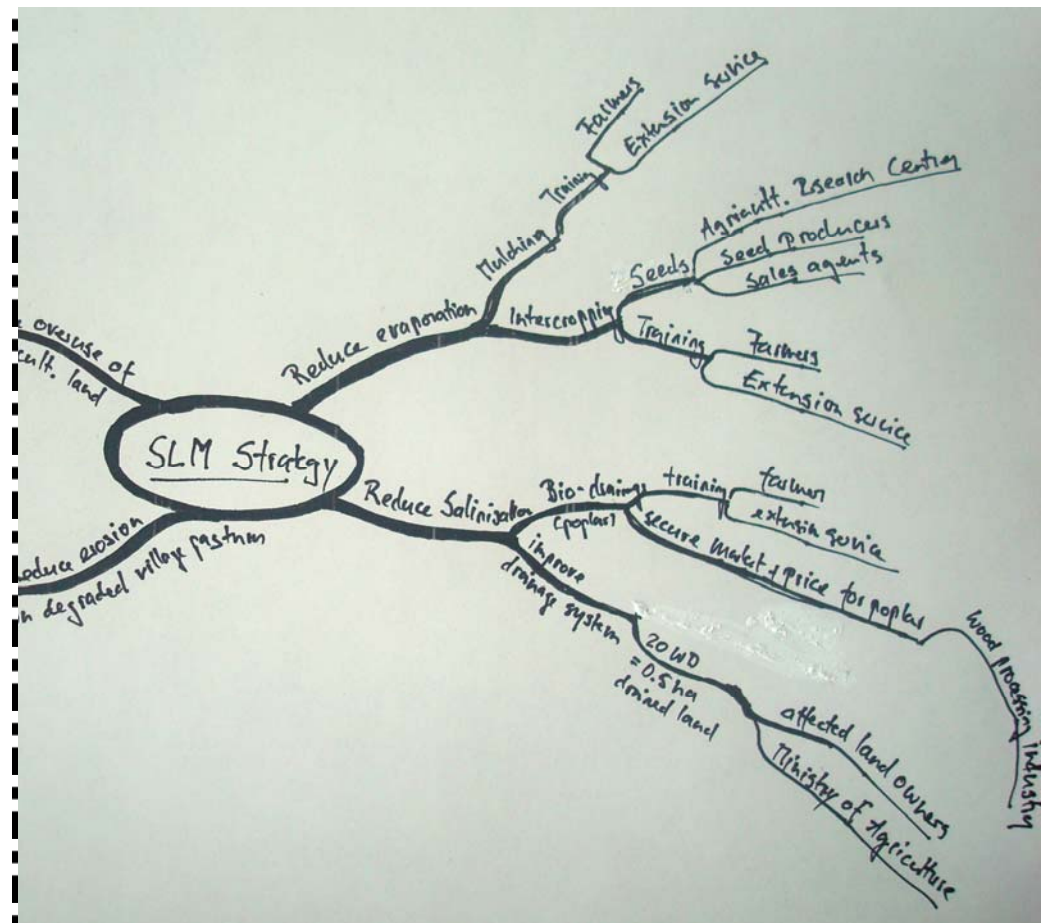 overuse of
cult. land
SLM Strategy
educe erosion
n degraded village pasture
Reduce evaporation
Mulching
Training
Farmers
Extension service
Intercropping
Seeds
Agricult. Research Center
Seed producers
Sales agents
Training
Farmers
Extension service
Reduce Salinisation
Bio-drainage
(poplar)
training
farmer
extension service
secure market + price for poplar
wood processing industry
improve
drainage system
20 WD
= 0.5 ha
drained land
affected land owners
Ministry of Agriculture